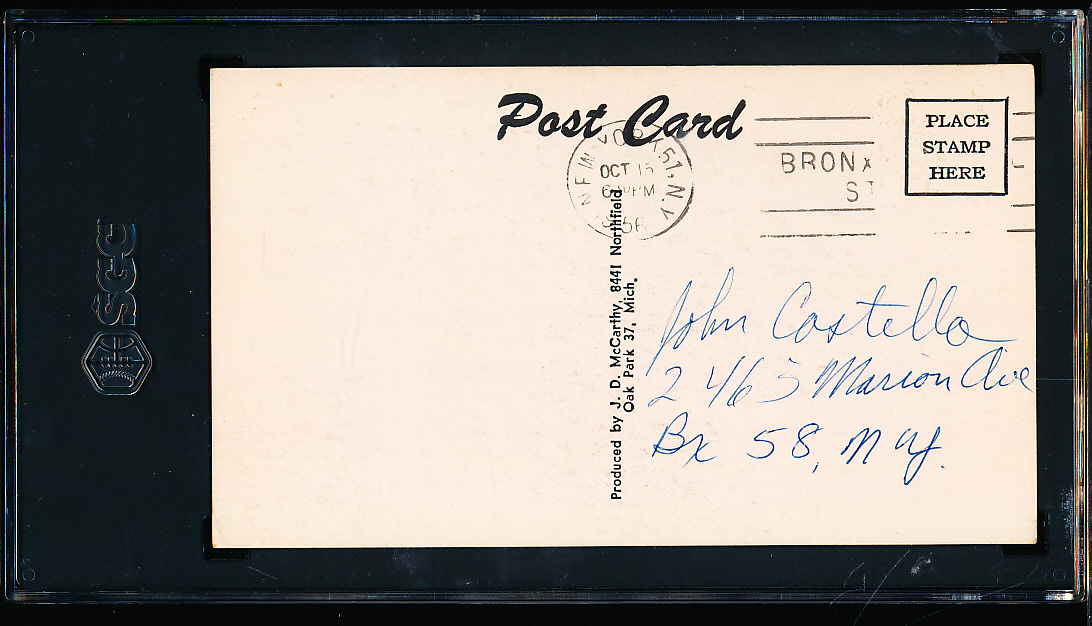 Post Card
NEW YORK 51, N.Y.
OCT 15
PM
1956
BRONX
ST
PLACE
STAMP
HERE
Produced by J. D. McCarthy, 8441 Northfield
Oak Park 37, Mich.
John Costello
2465 Marion Ave
Bx 58, N Y.
SGC